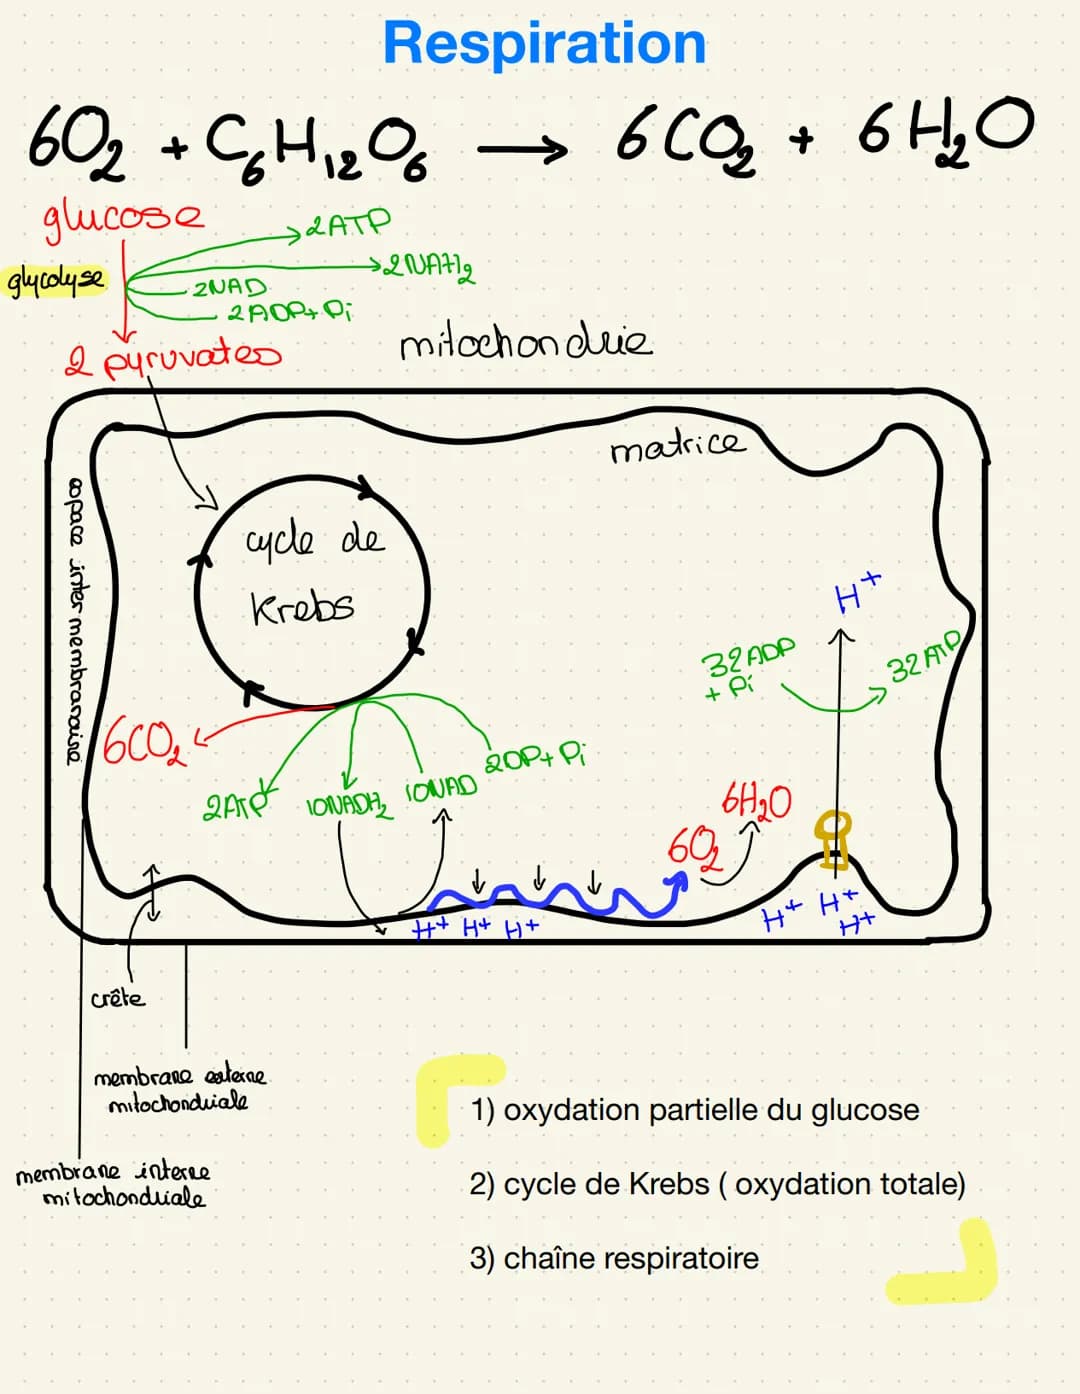 Respiration
6O₂ + C₆H₁₂O₆ → 6CO₂ + 6H₂O
glucose
2ATP
glycolyse
2NAH₂
2NAD
2ADP+Pi
2 pyruvates
mitochondrie
matrice
espace intermembranaire
cycle de
Krebs
H⁺
32ADP
+ Pi
32ATP
6CO₂
2ATP
10NADH₂
10NAD
2DP+Pi
6O₂
6H₂O
H⁺ H⁺ H⁺
H⁺ H⁺
H⁺
crête
membrane externe
mitochondriale
membrane interne
mitochondriale
1) oxydation partielle du glucose
2) cycle de Krebs ( oxydation totale)
3) chaîne respiratoire